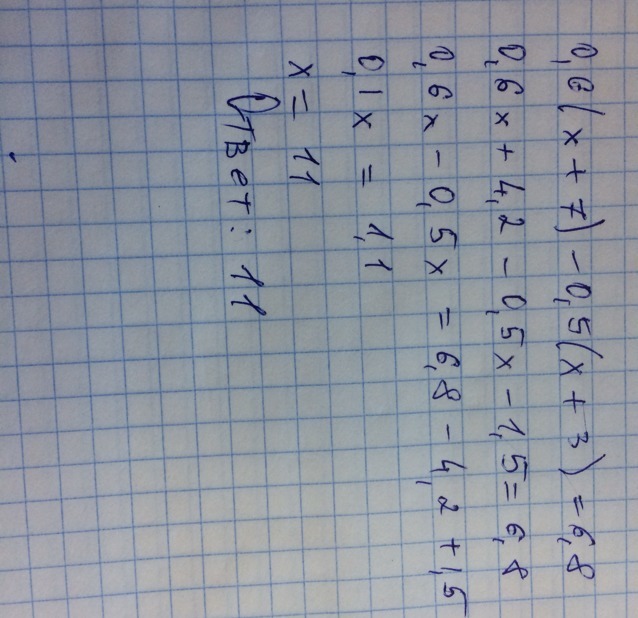 0,6(x + 7) - 0,5(x + 3) = 6,8
0,6x + 4,2 - 0,5x - 1,5 = 6,8
0,6x - 0,5x = 6,8 - 4,2 + 1,5
0,1x = 1,1
x = 11
Ответ: 11